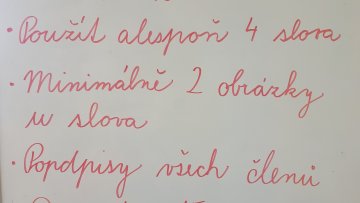 · Použít alespoň 4 slova
· Minimálně 2 obrázky
u slova
· Popdpisy všech členů